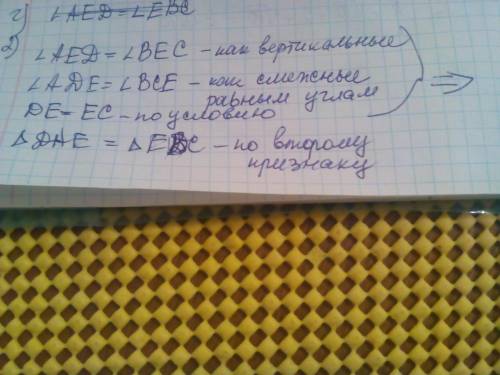 2) ∠AED = ∠EBC
2) ∠AED = ∠BEC – как вертикальные
∠ADE = ∠BCE – как смежные
равным углам
DE = EC – по условию
△DAE = △EBC – по второму
признаку